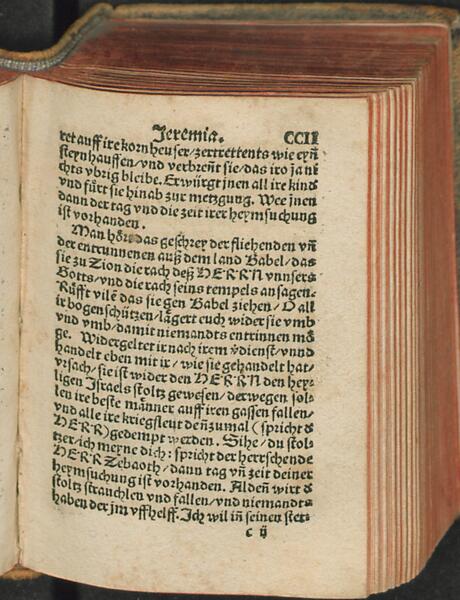 Jeremia. CCII
ret auff ire korn heuser/zertrettents wie eyn̄
steynhauffen/vnd verbrent sie/das iro ja ni
chts vbrig bleibe. Erwürgt jnen all ire kind
vnd fürt sie hinab zur metzgung. Wee jnen
dann der tag vnd die zeit irer heymsuchung
ist vorhanden.
Man hört das geschrey der fliehenden vn̄
der entrunnenen auß dem land Babel/das
sie zu Zion die rach deß HERRN vnnsers
Gotts/vnd die rach seins tempels ansagen.
Rüfft vilē das sie gen Babel ziehen/O all
ir bogenschützen/lägert euch wider sie vmb
vnd vmb/damit niemandts entrinnen mö
ge. Widergeltet ir nach irem v̄dienst/vnnd
handelt eben mit ir/wie sie gehandelt hat/
vrsach/sie ist wider den HERRN den hey-
ligen Israels stoltz gewesen/derwegen sol-
len ire beste männer auff iren gassen fallen/
vnd alle ire kriegsleut den̄zumal (spricht d̄
HERR) gedempt werden. Sihe/du stol-
tzer/ich meyne dich: spricht der herrschende
HERR Zebaoth/dann tag vn̄ zeit deiner
heymsuchung ist vorhanden. Alden̄ wirt d̄
stoltz strauchlen vnd fallen/vnd niemandts
haben der jm vffhelff. Ich wil in̄ seinen stet-
c ij